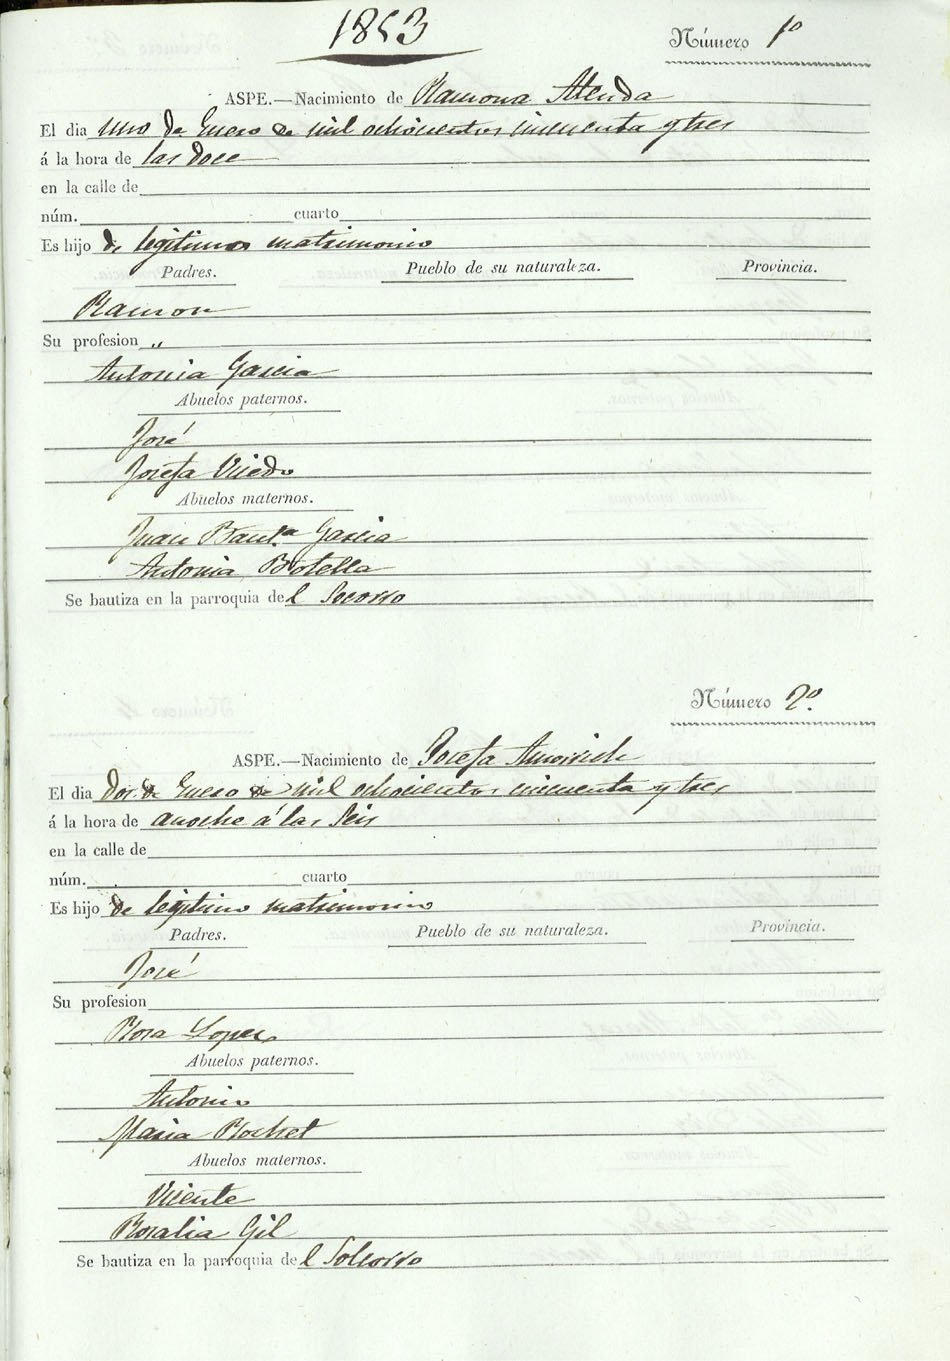 1853
Número 1º
ASPE.—Nacimiento de Ramona Alenda
El dia uno de Enero de mil ochocientos cincuenta y tres
á la hora de las doce
en la calle de
núm. cuarto
Es hijo de legitimo matrimonio
Padres. Pueblo de su naturaleza. Provincia.
Ramon
Su profesion „
Antonia Garcia
Abuelos paternos.
José
Josefa
Abuelos maternos.
Juan Bautª Garcia
Antonia Botella
Se bautiza en la parroquia del Socorro
Número 2º
ASPE.—Nacimiento de Josefa
El dia Dos de Enero de mil ochocientos cincuenta y tres
á la hora de anoche á las seis
en la calle de
núm. cuarto
Es hijo de legitimo matrimonio
Padres. Pueblo de su naturaleza. Provincia.
José
Su profesion
Rosa Lopez
Abuelos paternos.
Antonio
Maria
Abuelos maternos.
Vicente
Rosalia Gil
Se bautiza en la parroquia del Socorro